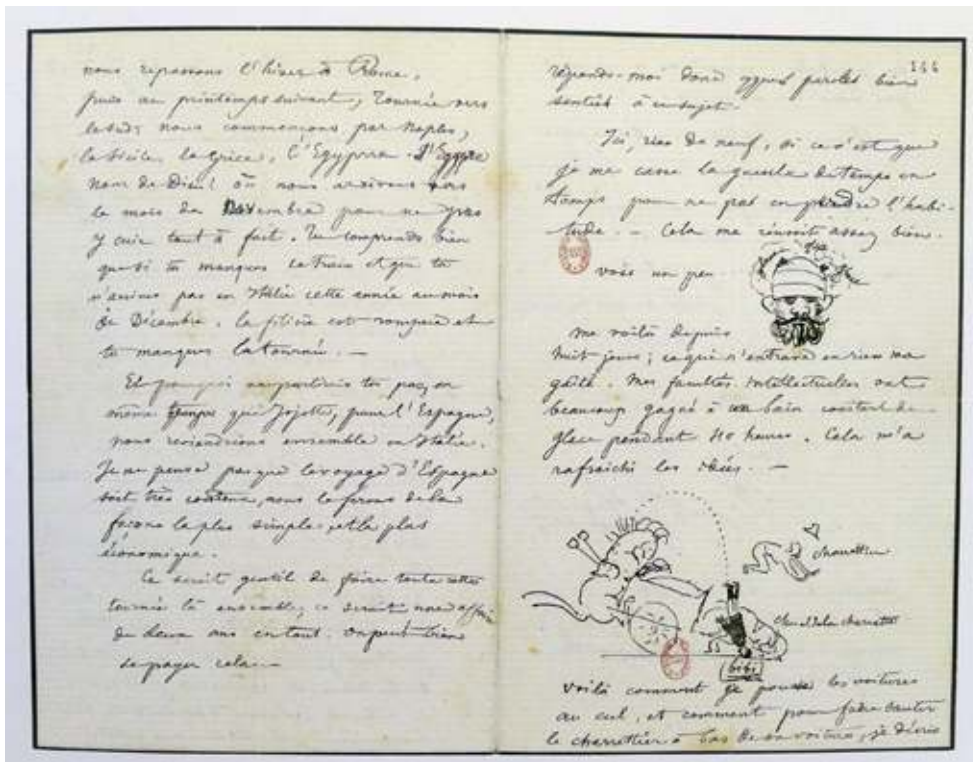 nous repassons l'hiver à Rome,
puis au printemps suivant, tournée vers
le sud; nous commençons par Naples,
la Sicile, la Grèce, l'Egypte. L'Egypte
Nom de Dieu! où nous arrivons vers
le mois de Novembre pour ne pas
y cuire tout à fait. Tu comprends bien
que si tu manques le train et que tu
n'arrives pas en Italie cette année au mois
de Décembre, la filière est rompue et
tu manques la tournée. —
Et pourquoi ne partirais tu pas, en
même temps que Jojotte, pour l'Espagne,
nous reviendrions ensemble en Italie.
Je ne pense pas que le voyage d'Espagne
soit très coûteux, nous le ferons de la
façon la plus simple et la plus
économique.
Ce serait gentil de faire toute cette
tournée là ensemble, ce serait une affaire
de deux ans en tout. On peut bien
se payer cela —
144
réponds-moi donc paroles bien
senties à ce sujet.
Ici, rien de neuf, si ce n'est que
je me casse la gueule de temps en
temps pour ne pas en perdre l'habi-
tude. — Cela me réussit assez bien.
vois un peu
me voilà depuis
huit jours; ce qui n'entrave en rien ma
gaîté. Mes facultés intellectuelles ont
beaucoup gagné à un bain constant de
glace pendant 40 heures. Cela m'a
rafraichi les idées. —
charrettier
charrette
bibi
voilà comment je pousse les voitures
au cul, et comment pour faire sauter
le charrettier à bas de sa voiture, je décris